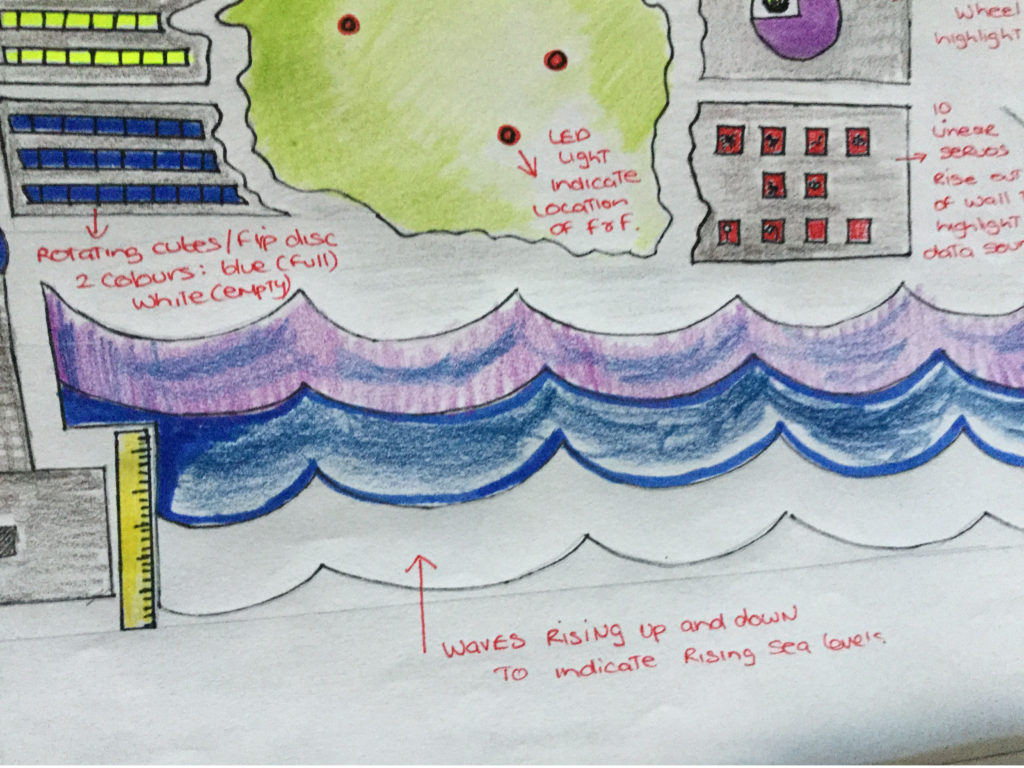 Wheel
highlight
LED
LIGHT
indicate
Location
of FrF.
10
Linear
servos
Rise out
of wall
highlight
data
Rotating cubes/flip disc
2 colours: blue (full)
white (empty)
Waves Rising up and down
To indicate Rising sea levels